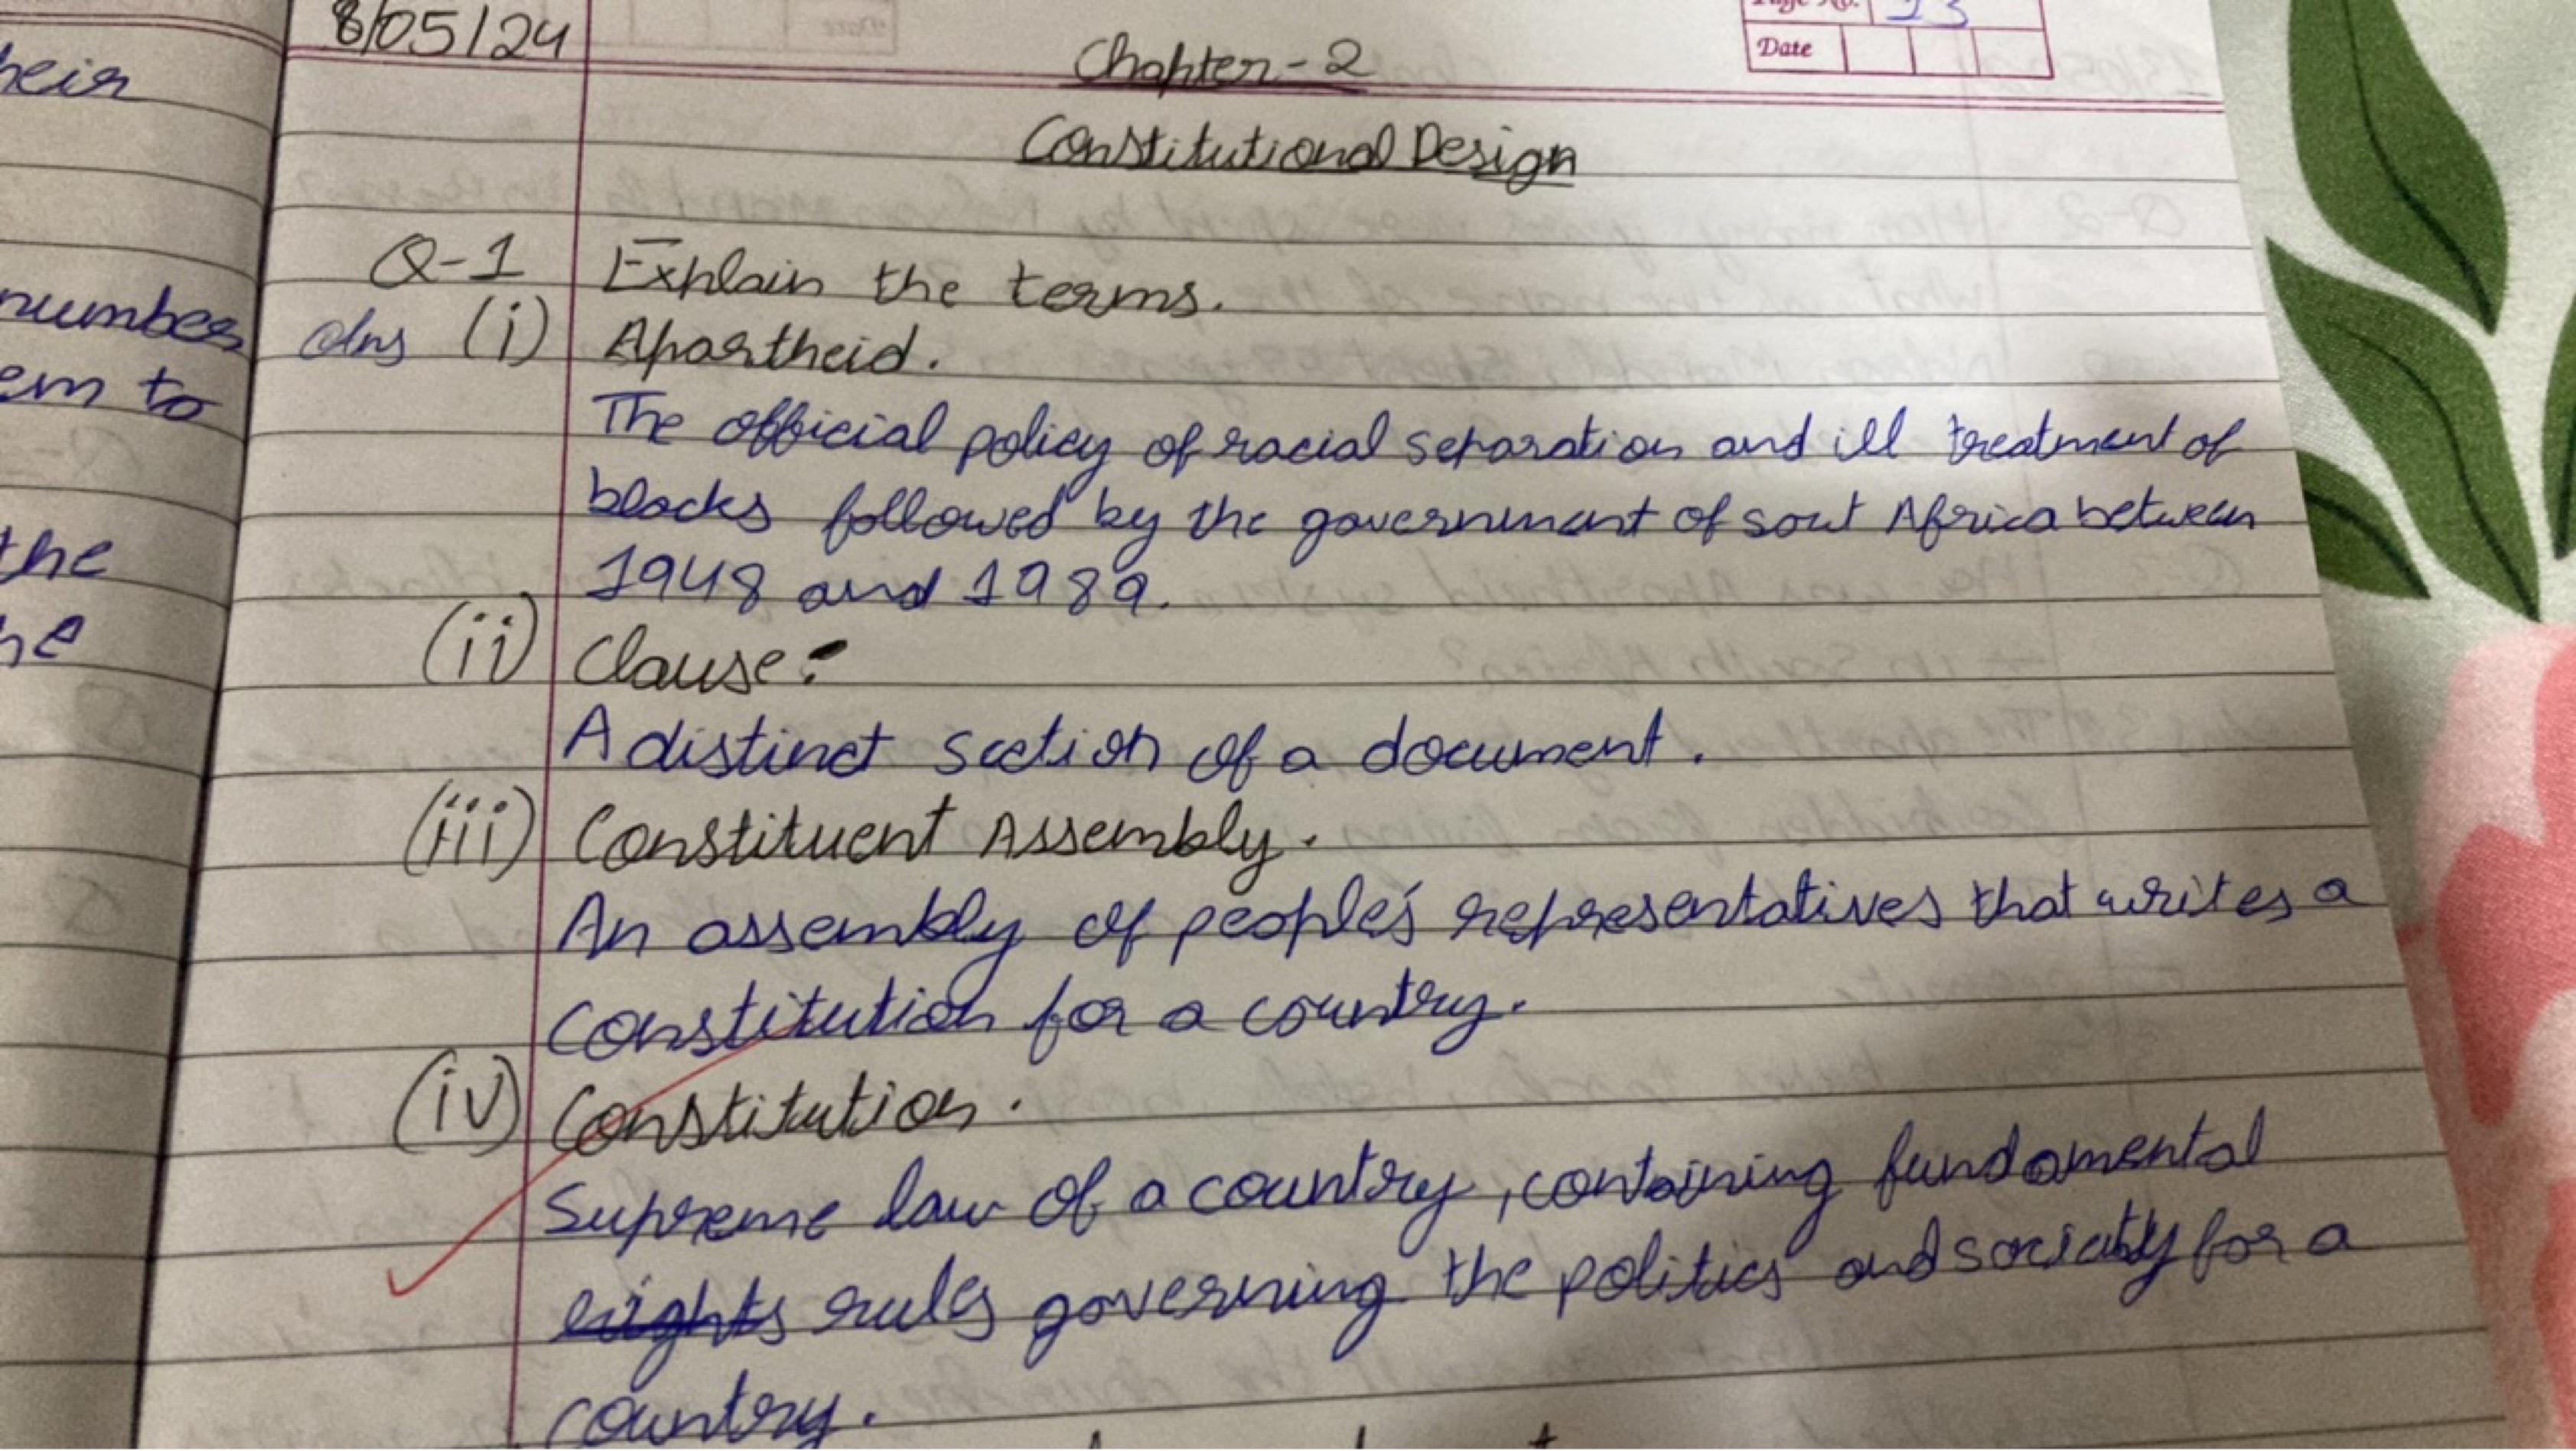 heir
number
em to
the
he
8/05/24
Page No. 13
Date
Chapter-2
Constitutional Design
Q-1 Explain the terms.
Ans (i) Apartheid.
The official policy of racial separation and ill treatment of
blacks followed by the government of sout Africa between
1948 and 1989.
(ii) Clause:
A distinct section of a document.
(iii) Constituent Assembly.
An assembly of people's representatives that writes a
constitution for a country.
(iv) Constitution.
Supreme law of a country, containing fundamental
rights rules governing the politics and society for a
country.